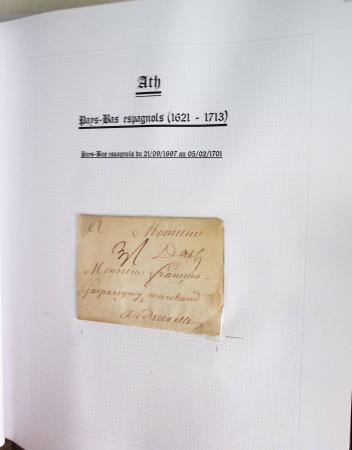 Ath
Pays-Bas espagnols (1621 - 1713)
Pays-Bas espagnols du 21/09/1697 au 05/02/1701
A Monsieur
3/ D'ath
Monsieur françois
marchand
A Bruxelle